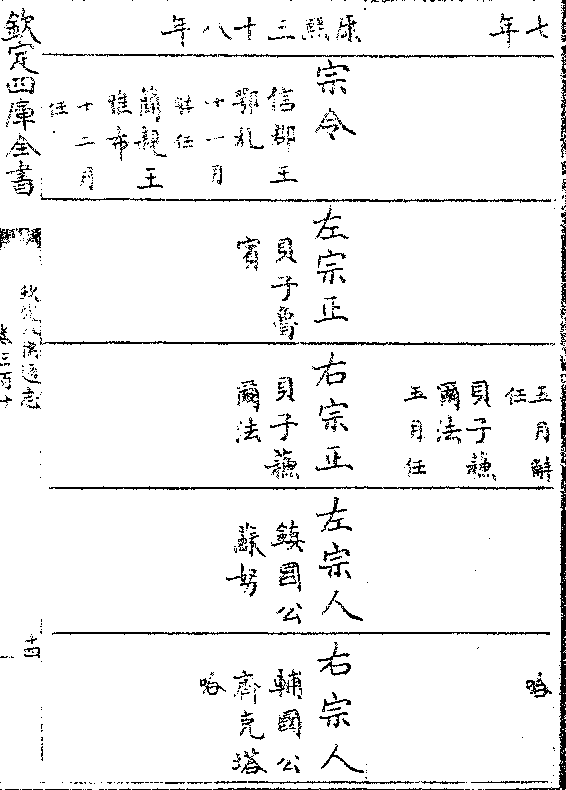 七年
五月解
任
貝子蘇
爾法
五月任
哈
康熙三十八年
宗令
信郡王
鄂札
十一月
解任
簡親王
雅布
十二月
任
左宗正
貝子魯
賓
右宗正
貝子蘇
爾法
左宗人
鎮國公
蘇努
右宗人
輔國公
齊克塔
哈
欽定四庫全書
欽定八旗通志
卷三百十
十四